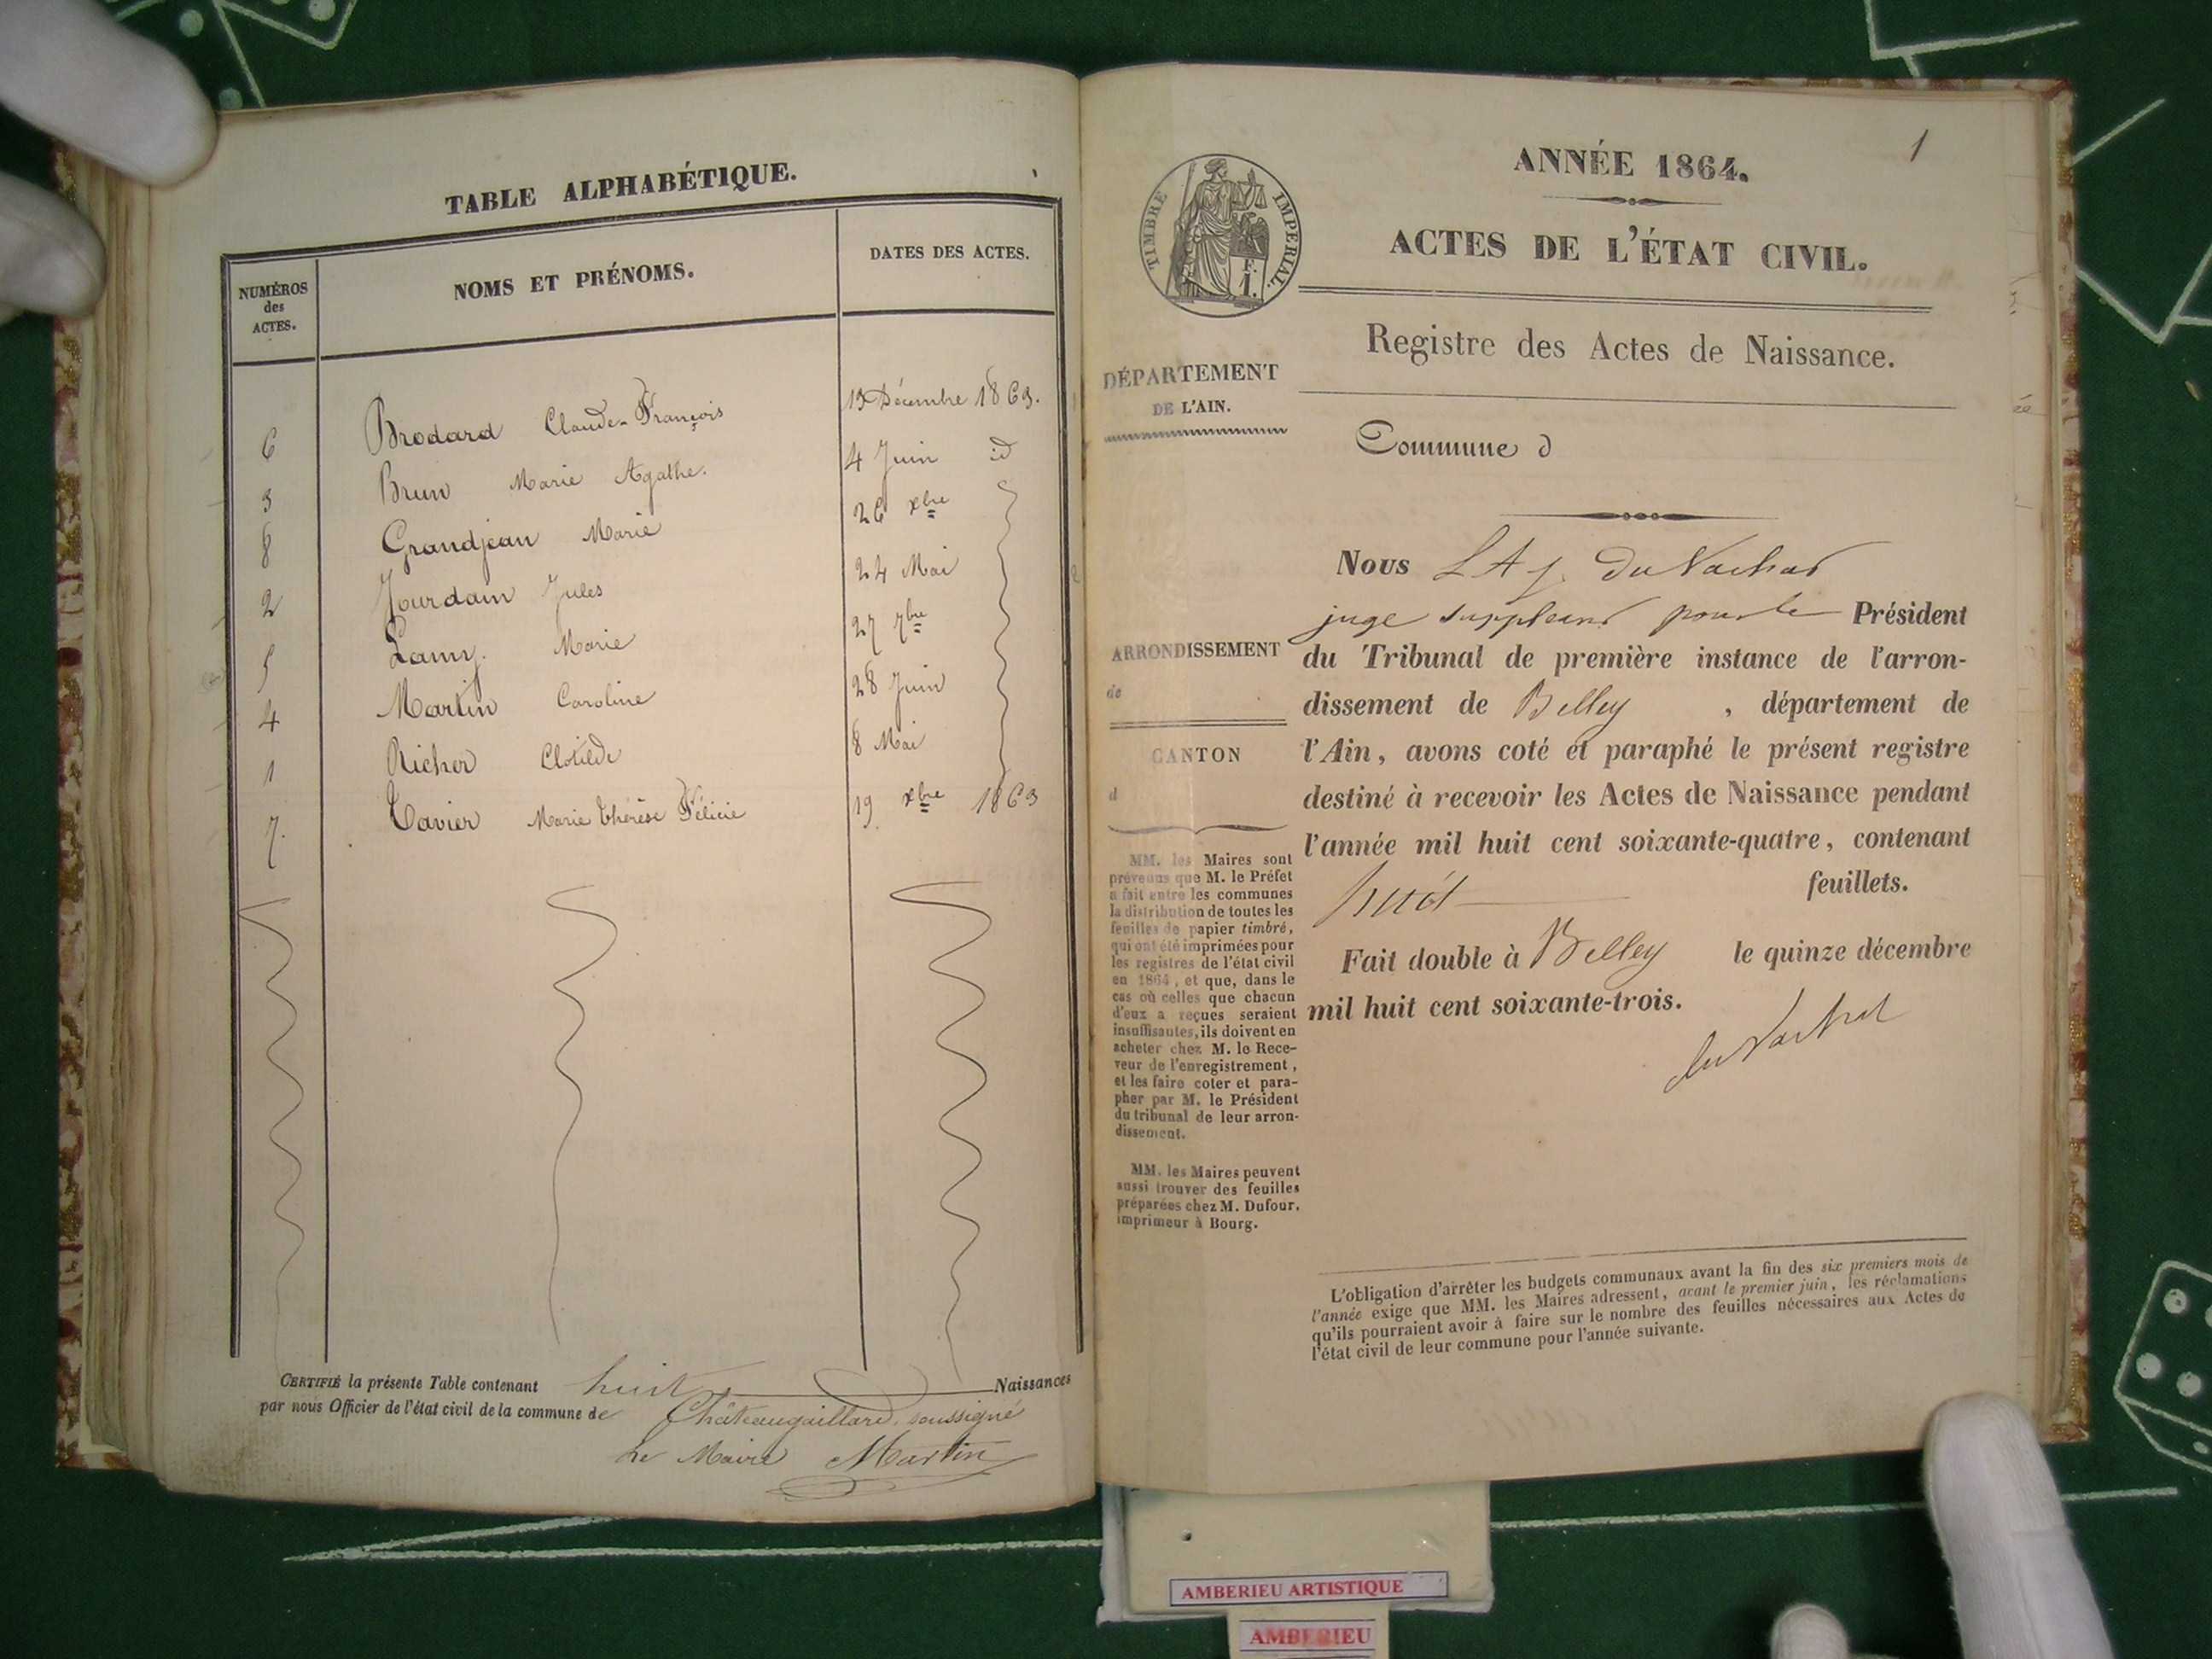 TABLE ALPHABÉTIQUE.
NUMÉROS
des
ACTES.
NOMS ET PRÉNOMS.
DATES DES ACTES.
6 Brodard Claude-François 13 Décembre 1863.
3 Brun Marie Agathe. 4 Juin id
8 Grandjean Marie 26 xbre
2 Jourdain Jules 24 Mai
5 Lamy. Marie 27 7bre
4 Martin Caroline 28 Juin
1 Richer Clotilde 8 Mai
7. Tavier Marie Thérèse Félicie 19 xbre 1863
CERTIFIÉ la présente Table contenant huit Naissances
par nous Officier de l'état civil de la commune de Châteaugaillard, soussigné
Le Maire Martin
1
TIMBRE IMPÉRIAL.
F.
1.
ANNÉE 1864.
ACTES DE L'ÉTAT CIVIL.
Registre des Actes de Naissance.
DÉPARTEMENT
DE L'AIN.
Commune d
ARRONDISSEMENT
de
CANTON
d
MM. les Maires sont
prévenus que M. le Préfet
a fait entre les communes
la distribution de toutes les
feuilles de papier timbré,
qui ont été imprimées pour
les registres de l'état civil
en 1864, et que, dans le
cas où celles que chacun
d'eux a reçues seraient
insuffisantes, ils doivent en
acheter chez M. le Rece-
veur de l'enregistrement,
et les faire coter et para-
pher par M. le Président
du tribunal de leur arron-
dissement.
MM. les Maires peuvent
aussi trouver des feuilles
préparées chez M. Dufour,
imprimeur à Bourg.
Nous L A J. du Vachat
juge suppléant pour le Président
du Tribunal de première instance de l'arron-
dissement de Belley, département de
l'Ain, avons coté et paraphé le présent registre
destiné à recevoir les Actes de Naissance pendant
l'année mil huit cent soixante-quatre, contenant
huit feuillets.
Fait double à Belley le quinze décembre
mil huit cent soixante-trois.
du Vachat
L'obligation d'arrêter les budgets communaux avant la fin des six premiers mois de
l'année exige que MM. les Maires adressent, avant le premier juin, les réclamations
qu'ils pourraient avoir à faire sur le nombre des feuilles nécessaires aux Actes de
l'état civil de leur commune pour l'année suivante.
AMBERIEU ARTISTIQUE
AMBERIEU